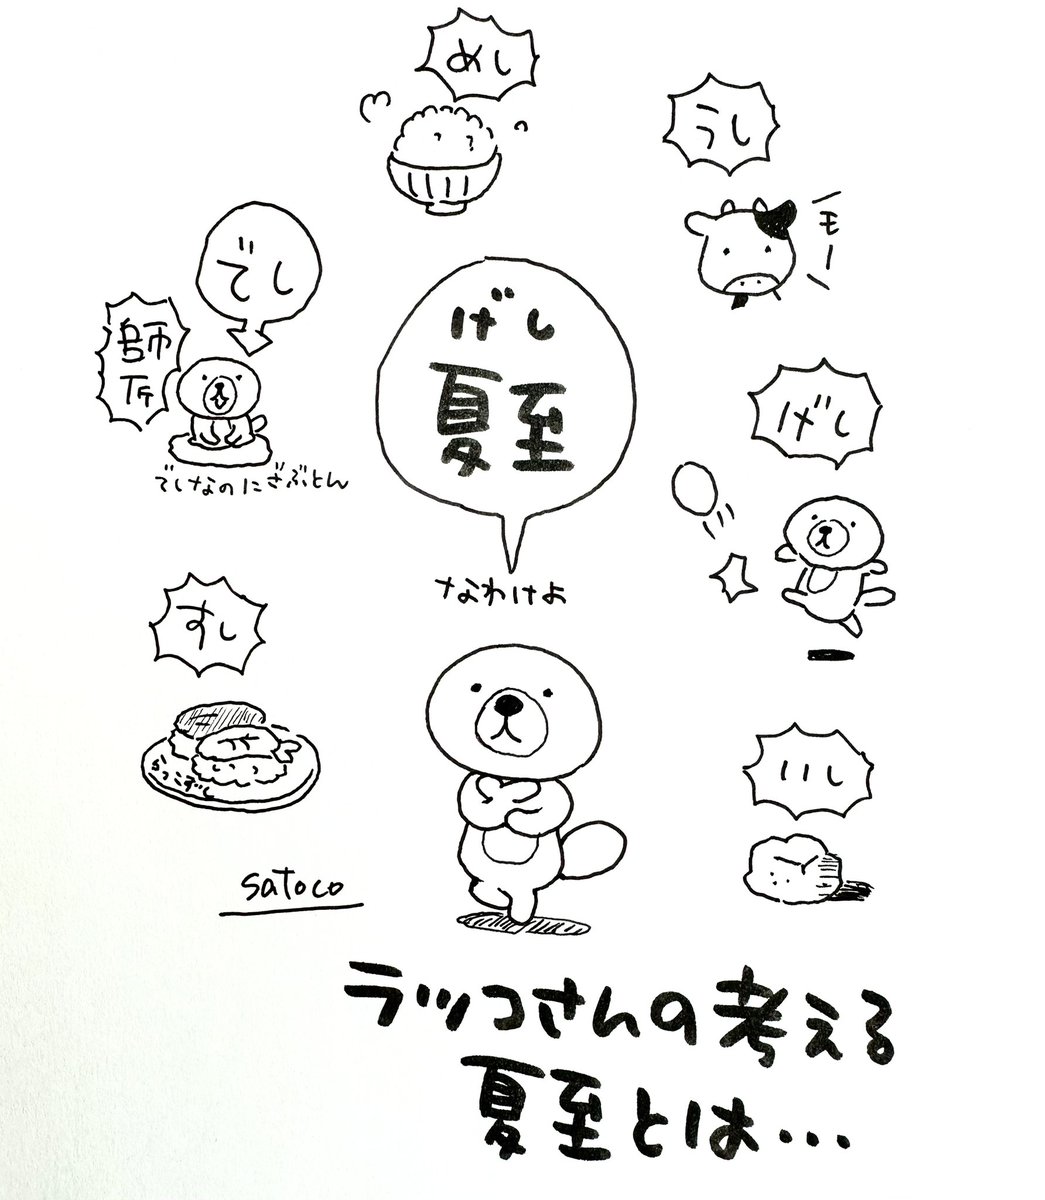 めし
うし
モー
でし
師匠
でしなのにざぶとん
げし
夏至
なわけよ
げし
すし
らっこずし
いし
satoco
ラッコさんの考える
夏至とは…